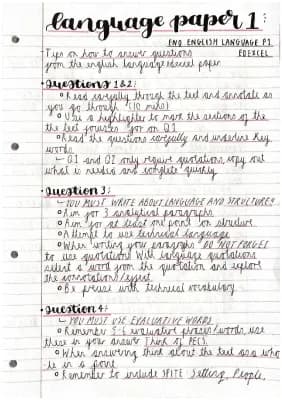 language paper 1:
ENG ENGLISH LANGUAGE P1
EDEXCEL
• Tips on how to answer questions
from the english language edexcel paper
• Questions 1 & 2:
Read carefully through the text and annotate as
you go through (10 mins)
Use a highlighter to mark the sections of the
the text focuses for on Q1
Read the questions carefully and underline key
words
Q1 and Q2 only require quotations, copy out
what is needed and complete quickly
• Question 3:
YOU MUST WRITE ABOUT LANGUAGE AND STRUCTURE
Aim for 3 analytical paragraphs
Aim for at least one point on structure
Attempt to use technical language
When writing your paragraphs DO NOT FORGET
to use quotations. With language quotations
select a word from the quotation and explore
the connotations/effect.
Be precise with technical vocabulary.
• Question 4:
YOU MUST USE EVALUATIVE WORDS
Remember 5-6 evaluative phrases/words, use
these in your answer. Think of PEEL.
When answering think about the text as a who
le in a point
Remember to include SPITE Setting, People,